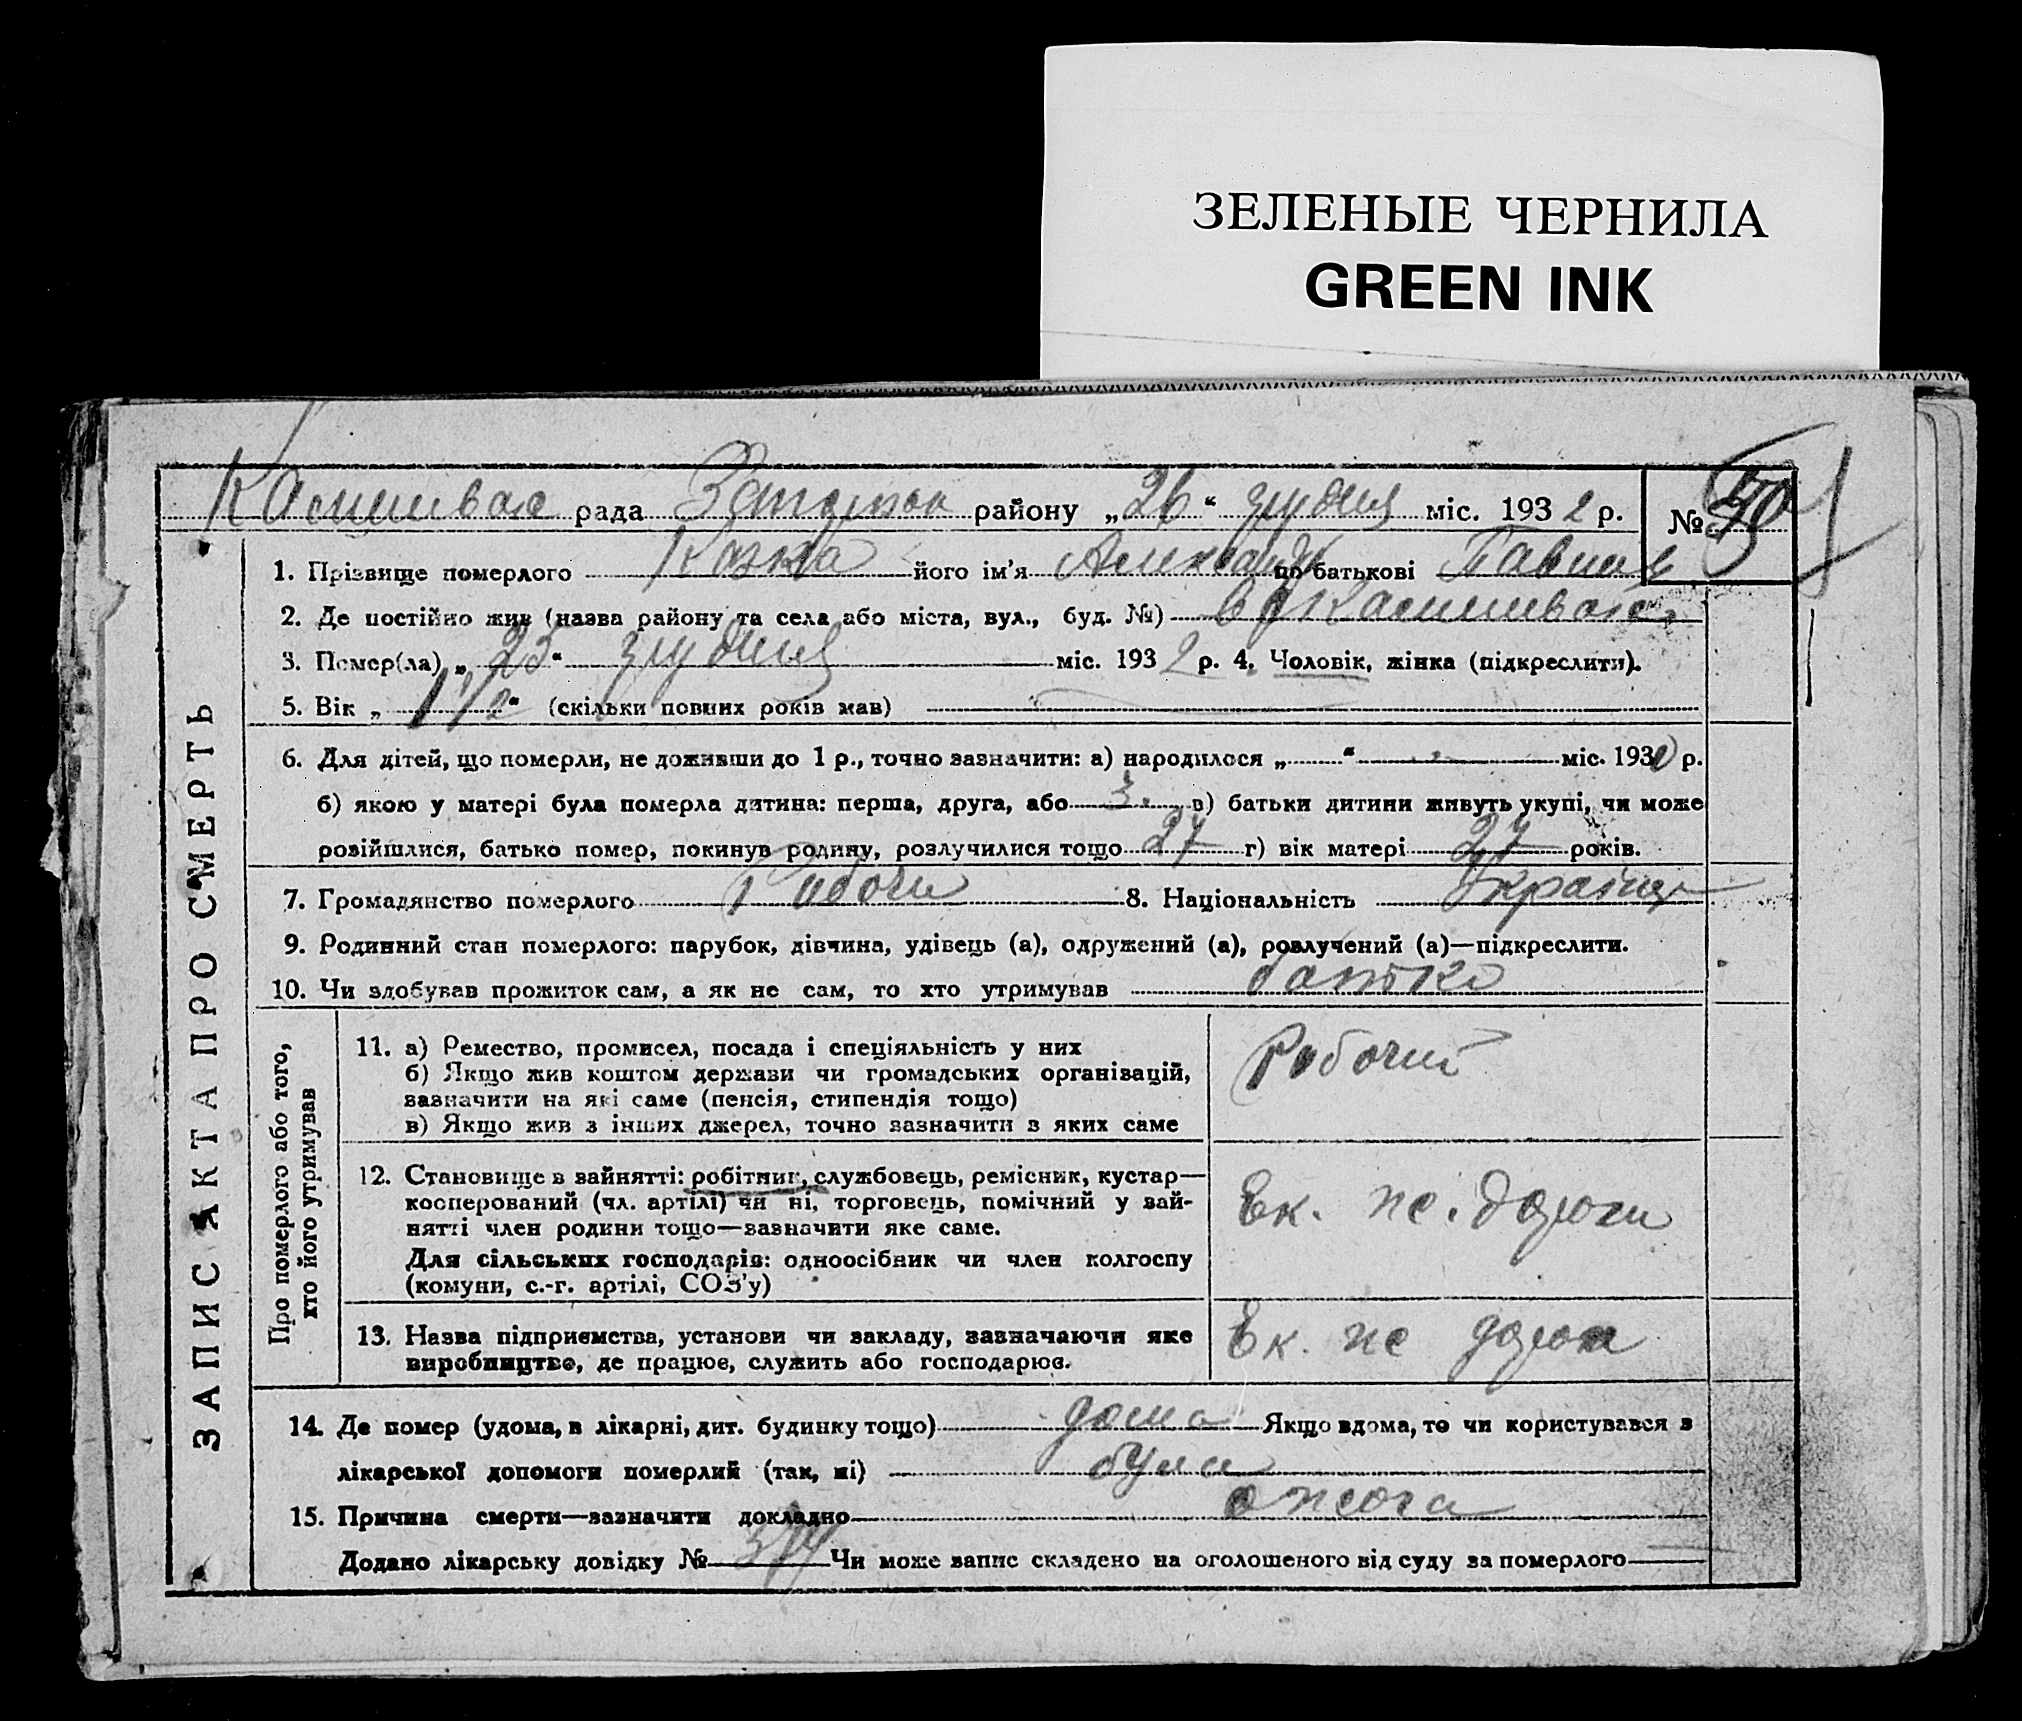 ЗЕЛЕНЫЕ ЧЕРНИЛА
GREEN INK
рада району „26“ грудня міс. 1932 р. №
1. Прізвище померлого Казка його ім'я по батькові
2. Де постійно жив (назва району та села або міста, вул., буд. №)
3. Помер(ла) „25“ грудня міс. 1932 р. 4. Чоловік, жінка (підкреслити).
5. Вік „1 1/2“ (скільки повних років мав)
6. Для дітей, що померли, не доживши до 1 р., точно зазначити: а) народилося „ “ міс. 193 р.
б) якою у матері була померла дитина: перша, друга, або 3. в) батьки дитини живуть укупі, чи може
розійшлися, батько помер, покинув родину, розлучилися тощо 27 г) вік матері 27 років.
7. Громадянство померлого Рабочи 8. Національність Україн
9. Родинний стан померлого: парубок, дівчина, удівець (а), одружений (а), розлучений (а)—підкреслити.
10. Чи здобував прожиток сам, а як не сам, то хто утримував батько
ЗАПИС АКТА ПРО СМЕРТЬ
Про померлого або того,
хто його утримував
11. а) Ремество, промисел, посада і спеціяльність у них
б) Якщо жив коштом держави чи громадських організацій,
зазначити на які саме (пенсія, стипендія тощо)
в) Якщо жив з інших джерел, точно зазначити з яких саме
Рабочий
12. Становище в зайнятті: робітник, службовець, ремісник, кустар—
кооперований (чл. артілі) чи ні, торговець, помічний у зай-
нятті член родини тощо—зазначити яке саме.
Для сільських господарів: одноосібник чи член колгоспу
(комуни, с.-г. артілі, СОЗ'у)
Ек. же. дороги
13. Назва підприємства, установи чи закладу, зазначаючи яке
виробництво, де працює, служить або господарює.
Ек. же
14. Де помер (удома, в лікарні, дит. будинку тощо) дома Якщо вдома, то чи користувався з
лікарської допомоги померлий (так, ні) була
15. Причина смерти—зазначити докладно ожога
Додано лікарську довідку № Чи може запис складено на оголошеного від суду за померлого